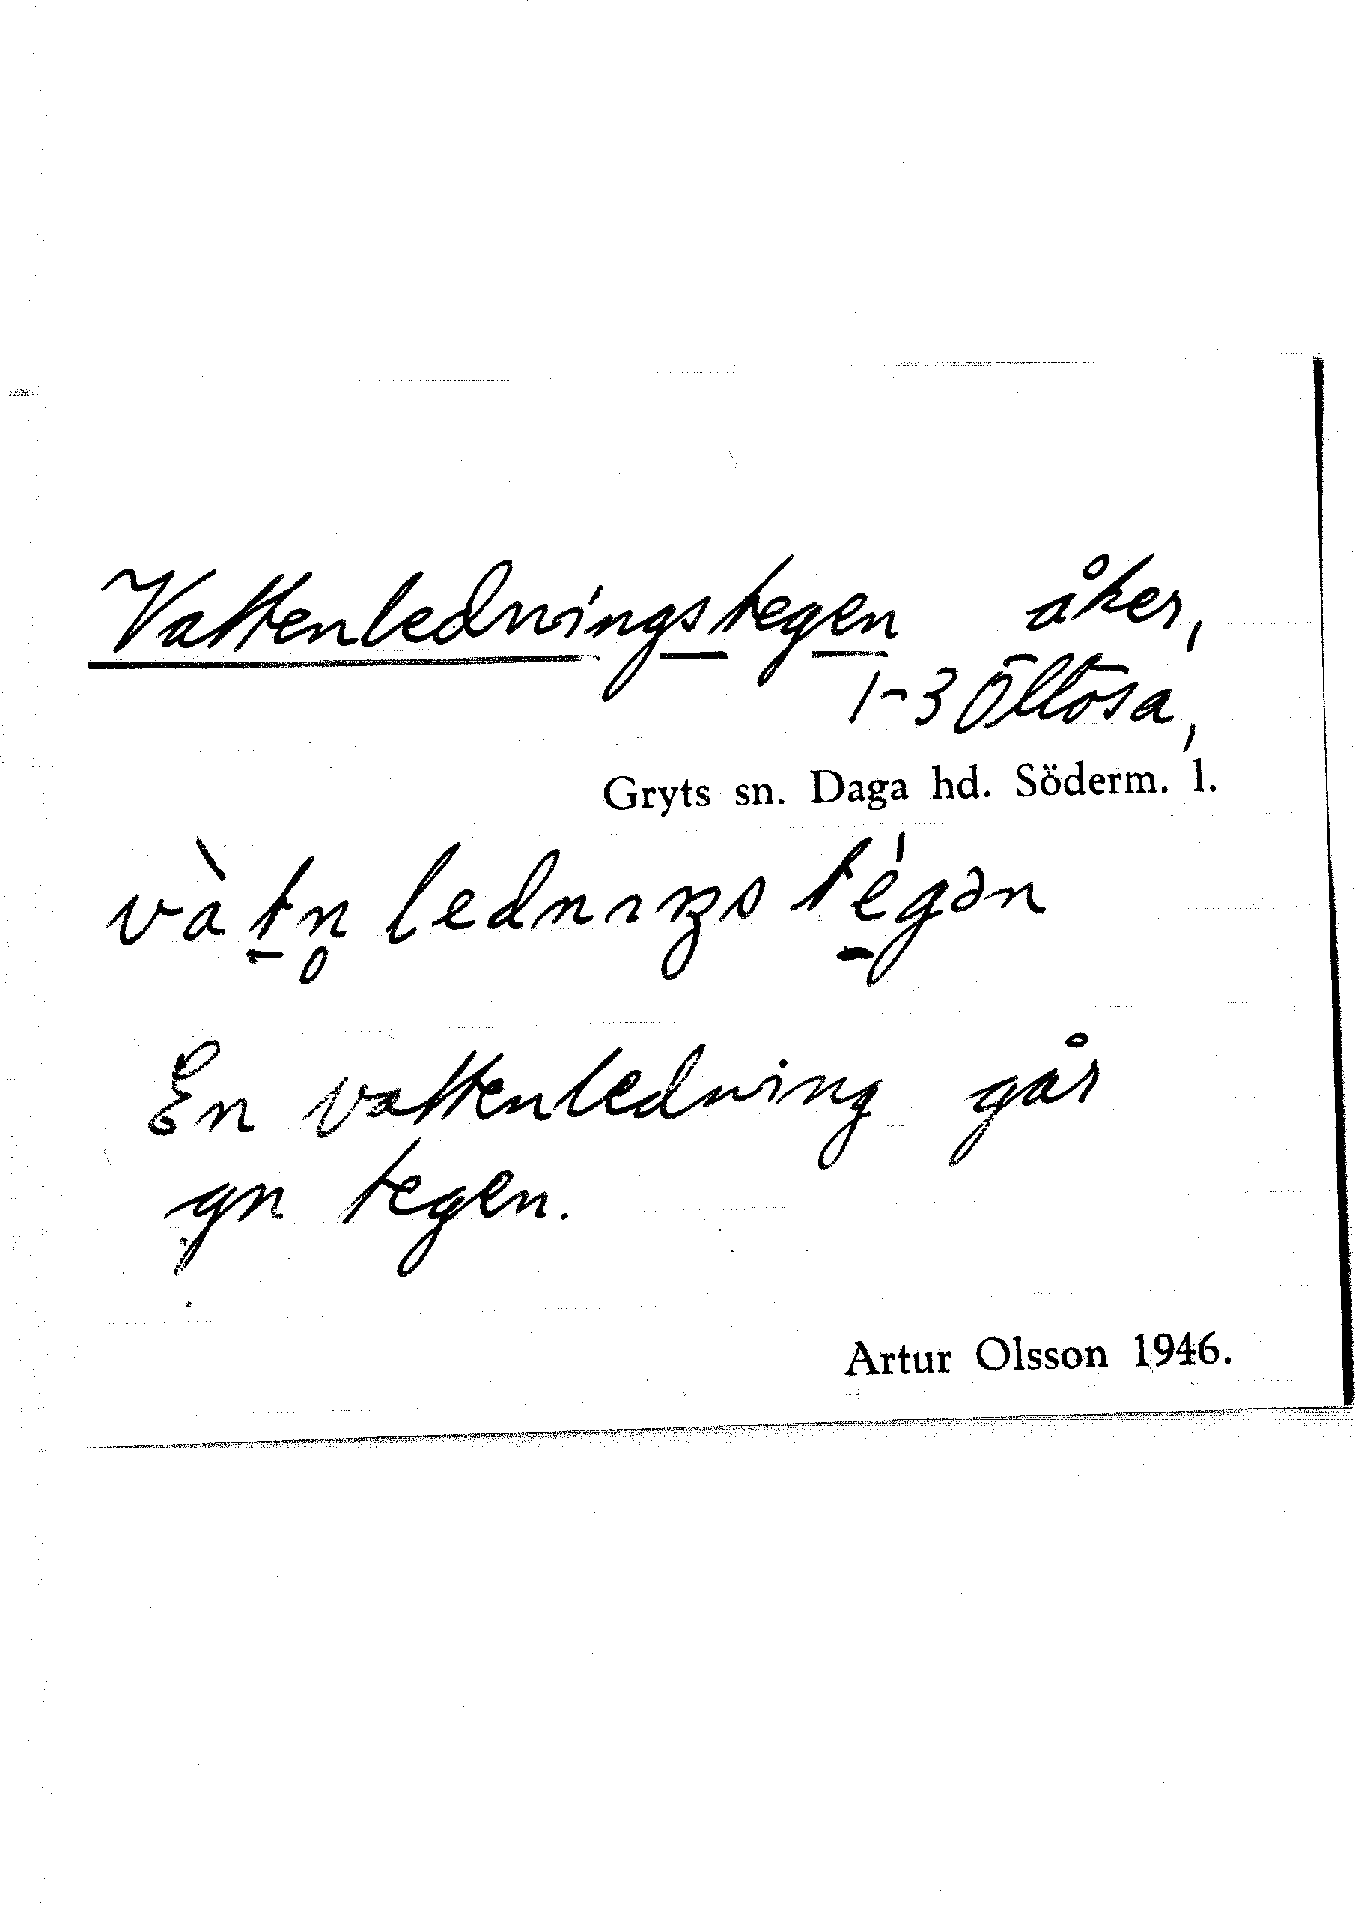 Vattenledningstegen åker,
1-3 Öllösa,
Gryts sn. Daga hd. Söderm. l.
vàtn̥ lednıŋstégən
En vattenledning går
gn tegen.
Artur Olsson 1946.